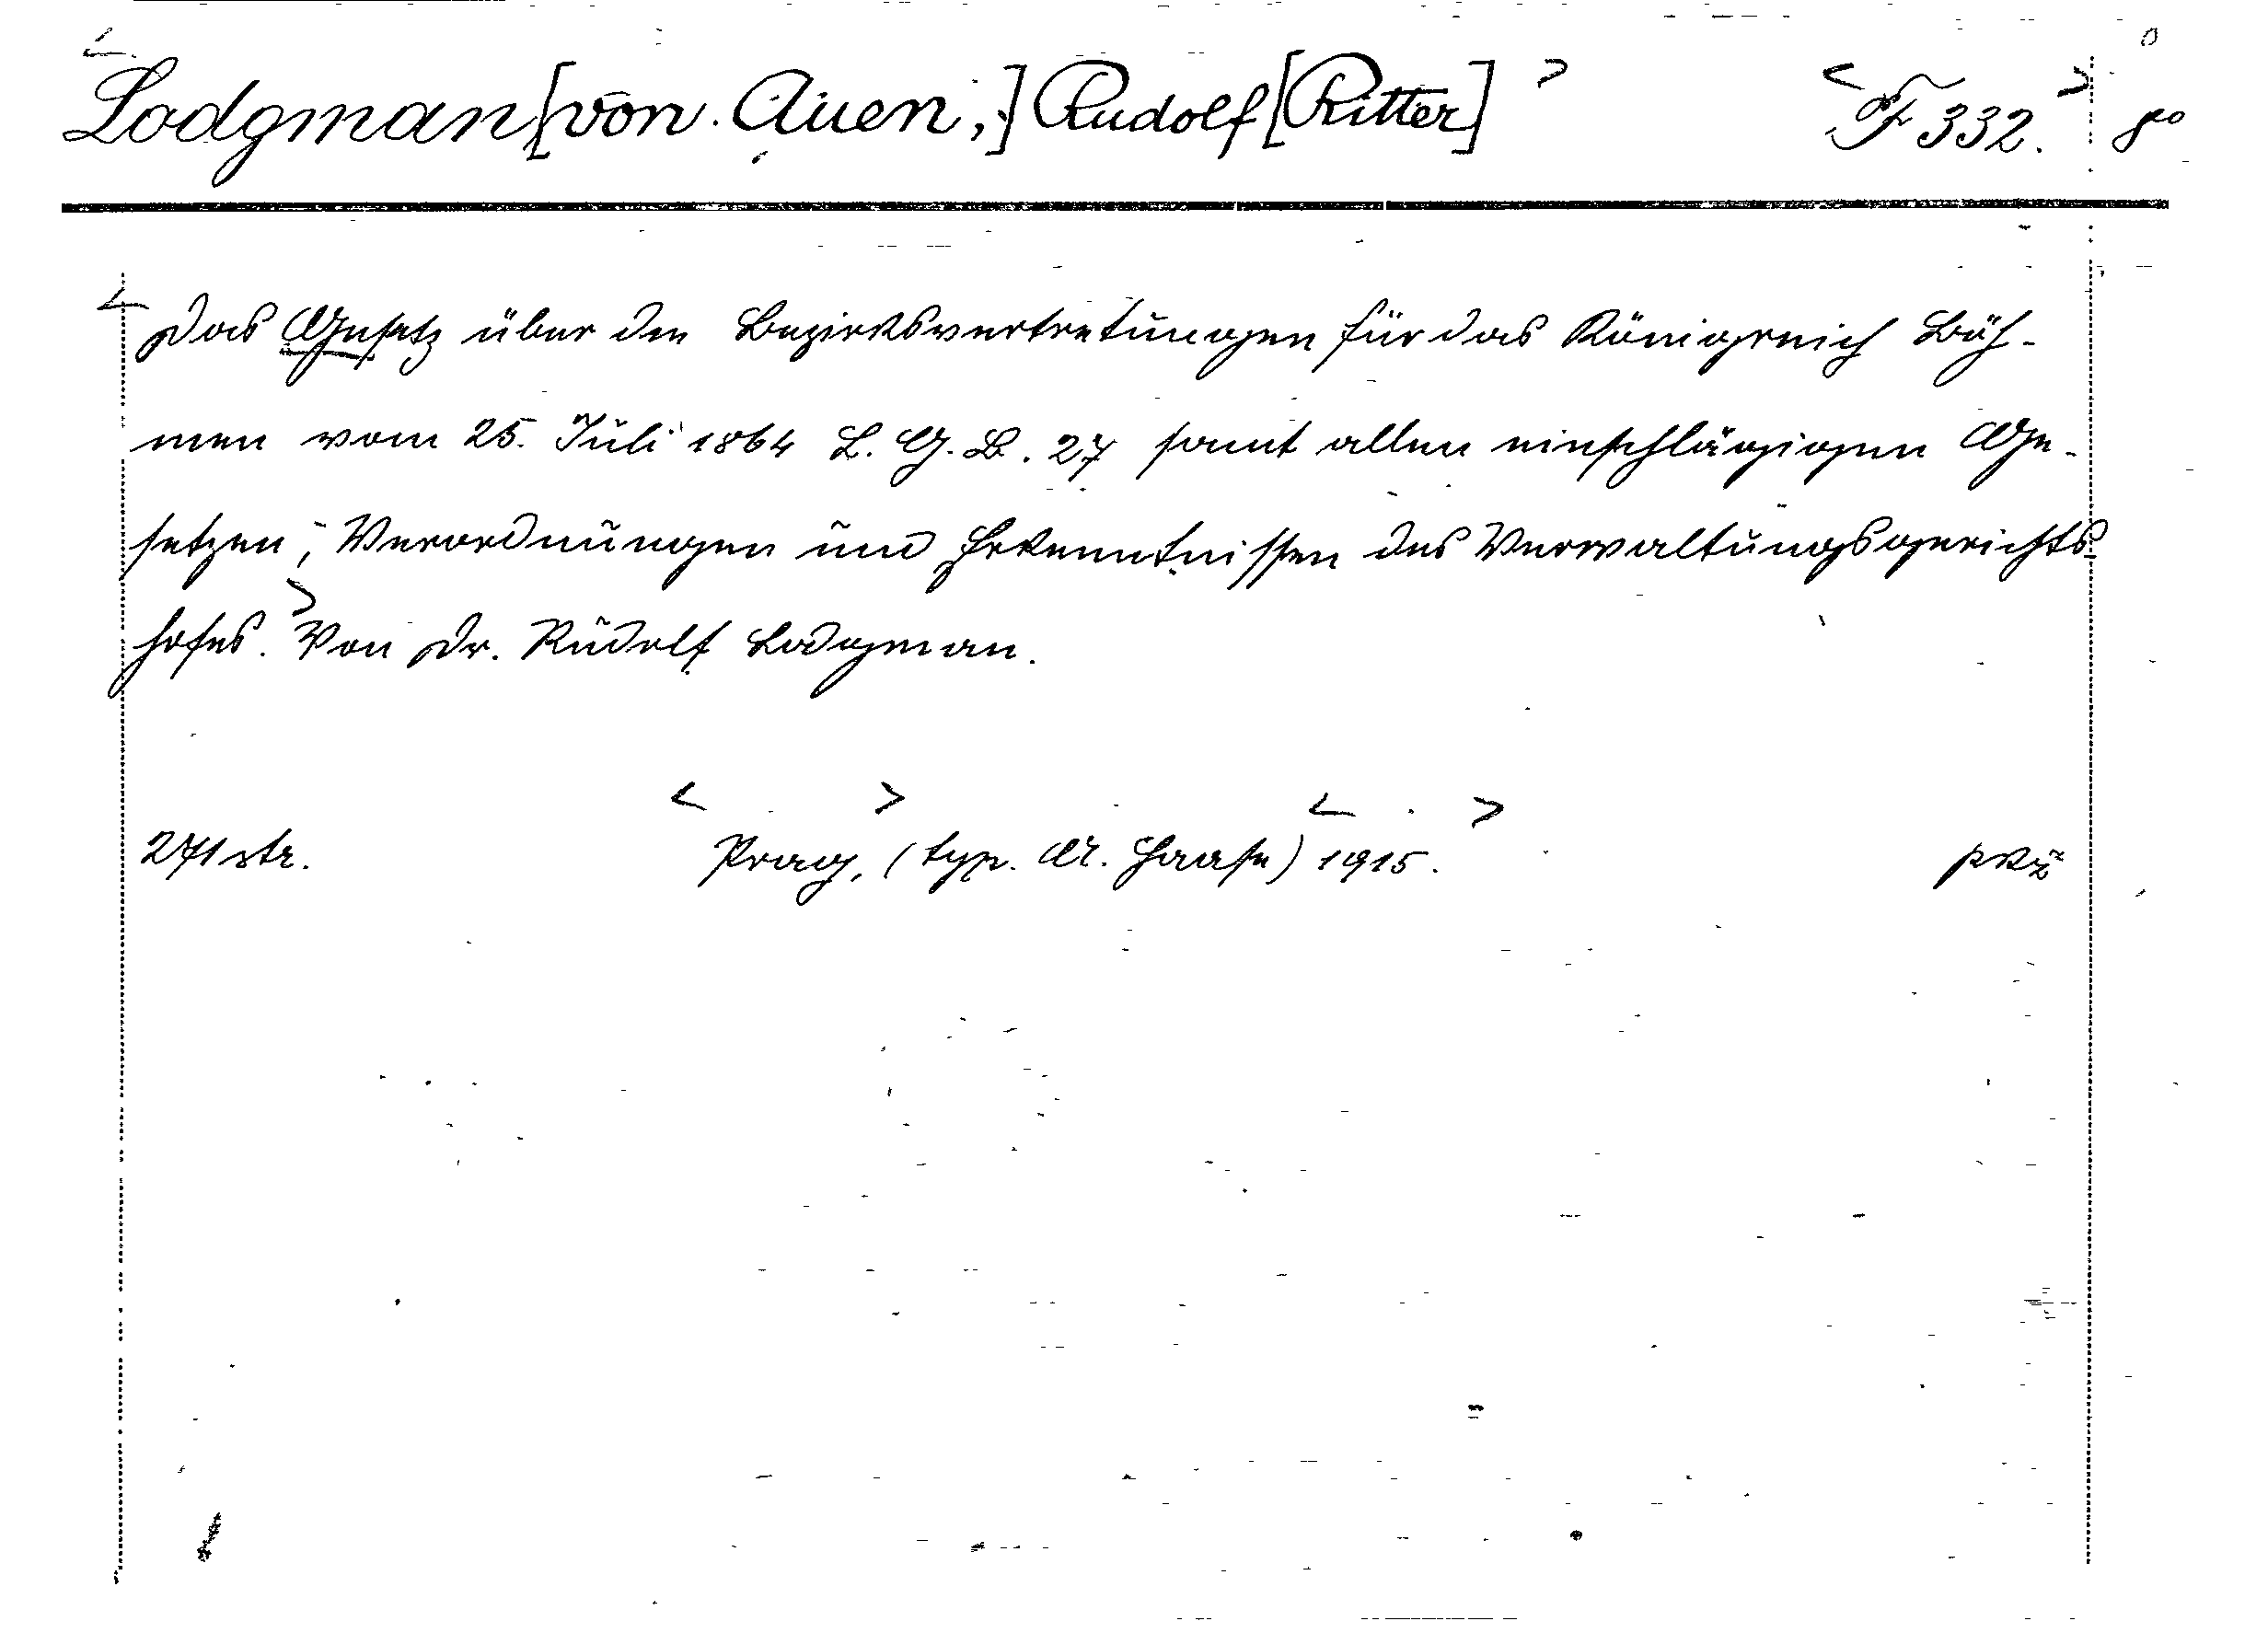 Lodgman [von Auen,] Rudolf [Ritter] F 332. 8°
Das Gesetz über die Bezirksvertretungen für das Königreich Böh-
men vom 25. Juli 1864 L. G. B. 27 samt allen einschlägigen Ge-
setzen, Verordnungen und Erkenntnissen des Verwaltungsgerichts-
hofes. Von Dr. Rudolf Lodgman.
271 str. Prag, (typ. A. Haase) 1915.